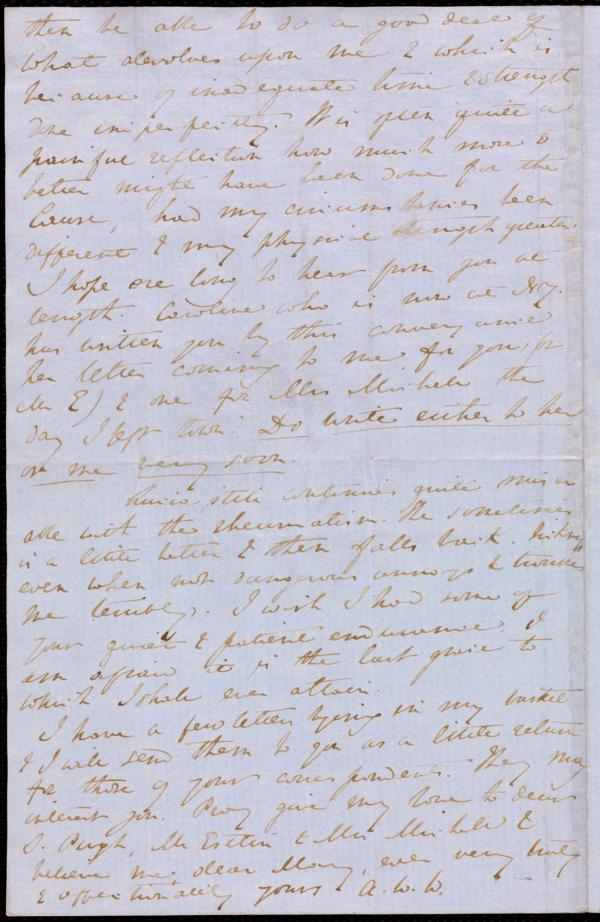 then be able to do a good deal of
what devolves upon me & which is
because of inadequate time & strength
done imperfectly. It is often quite a
painful reflection how much more &
better might have been done for the
Cause, had my circumstances been
different & my physical strength greater.
I hope ere long to hear from you at
length. Caroline who is now at
has written you by this conveyance
her letter coming to me for you, (or
Mr E) & one for Mrs Michell the
day I left town. Do write either to her
or me very soon.
still continues quite miser
able with the rheumatism. He sometimes
is a little better & then falls back. Sickness
even when not dangerous annoys & troubles
me terribly. I wish I had some of
your quiet & patient endurance. I
am afraid it is the last grace to
which I shall ever attain.
I have a few letters lying in my basket
& I will send them to you as a little return
for those of your correspondents. They may
interest you. Pray give my love to dear
S. Pugh, Mr Estlin & Mrs Michell &
believe me, dear Mary, ever very truly
& affectionately yours A. W. W.